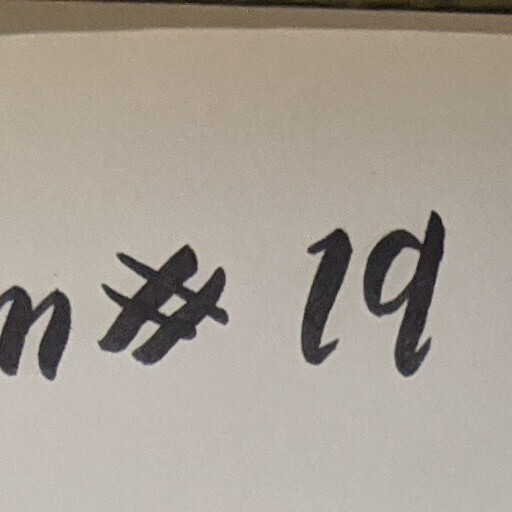 n # 19